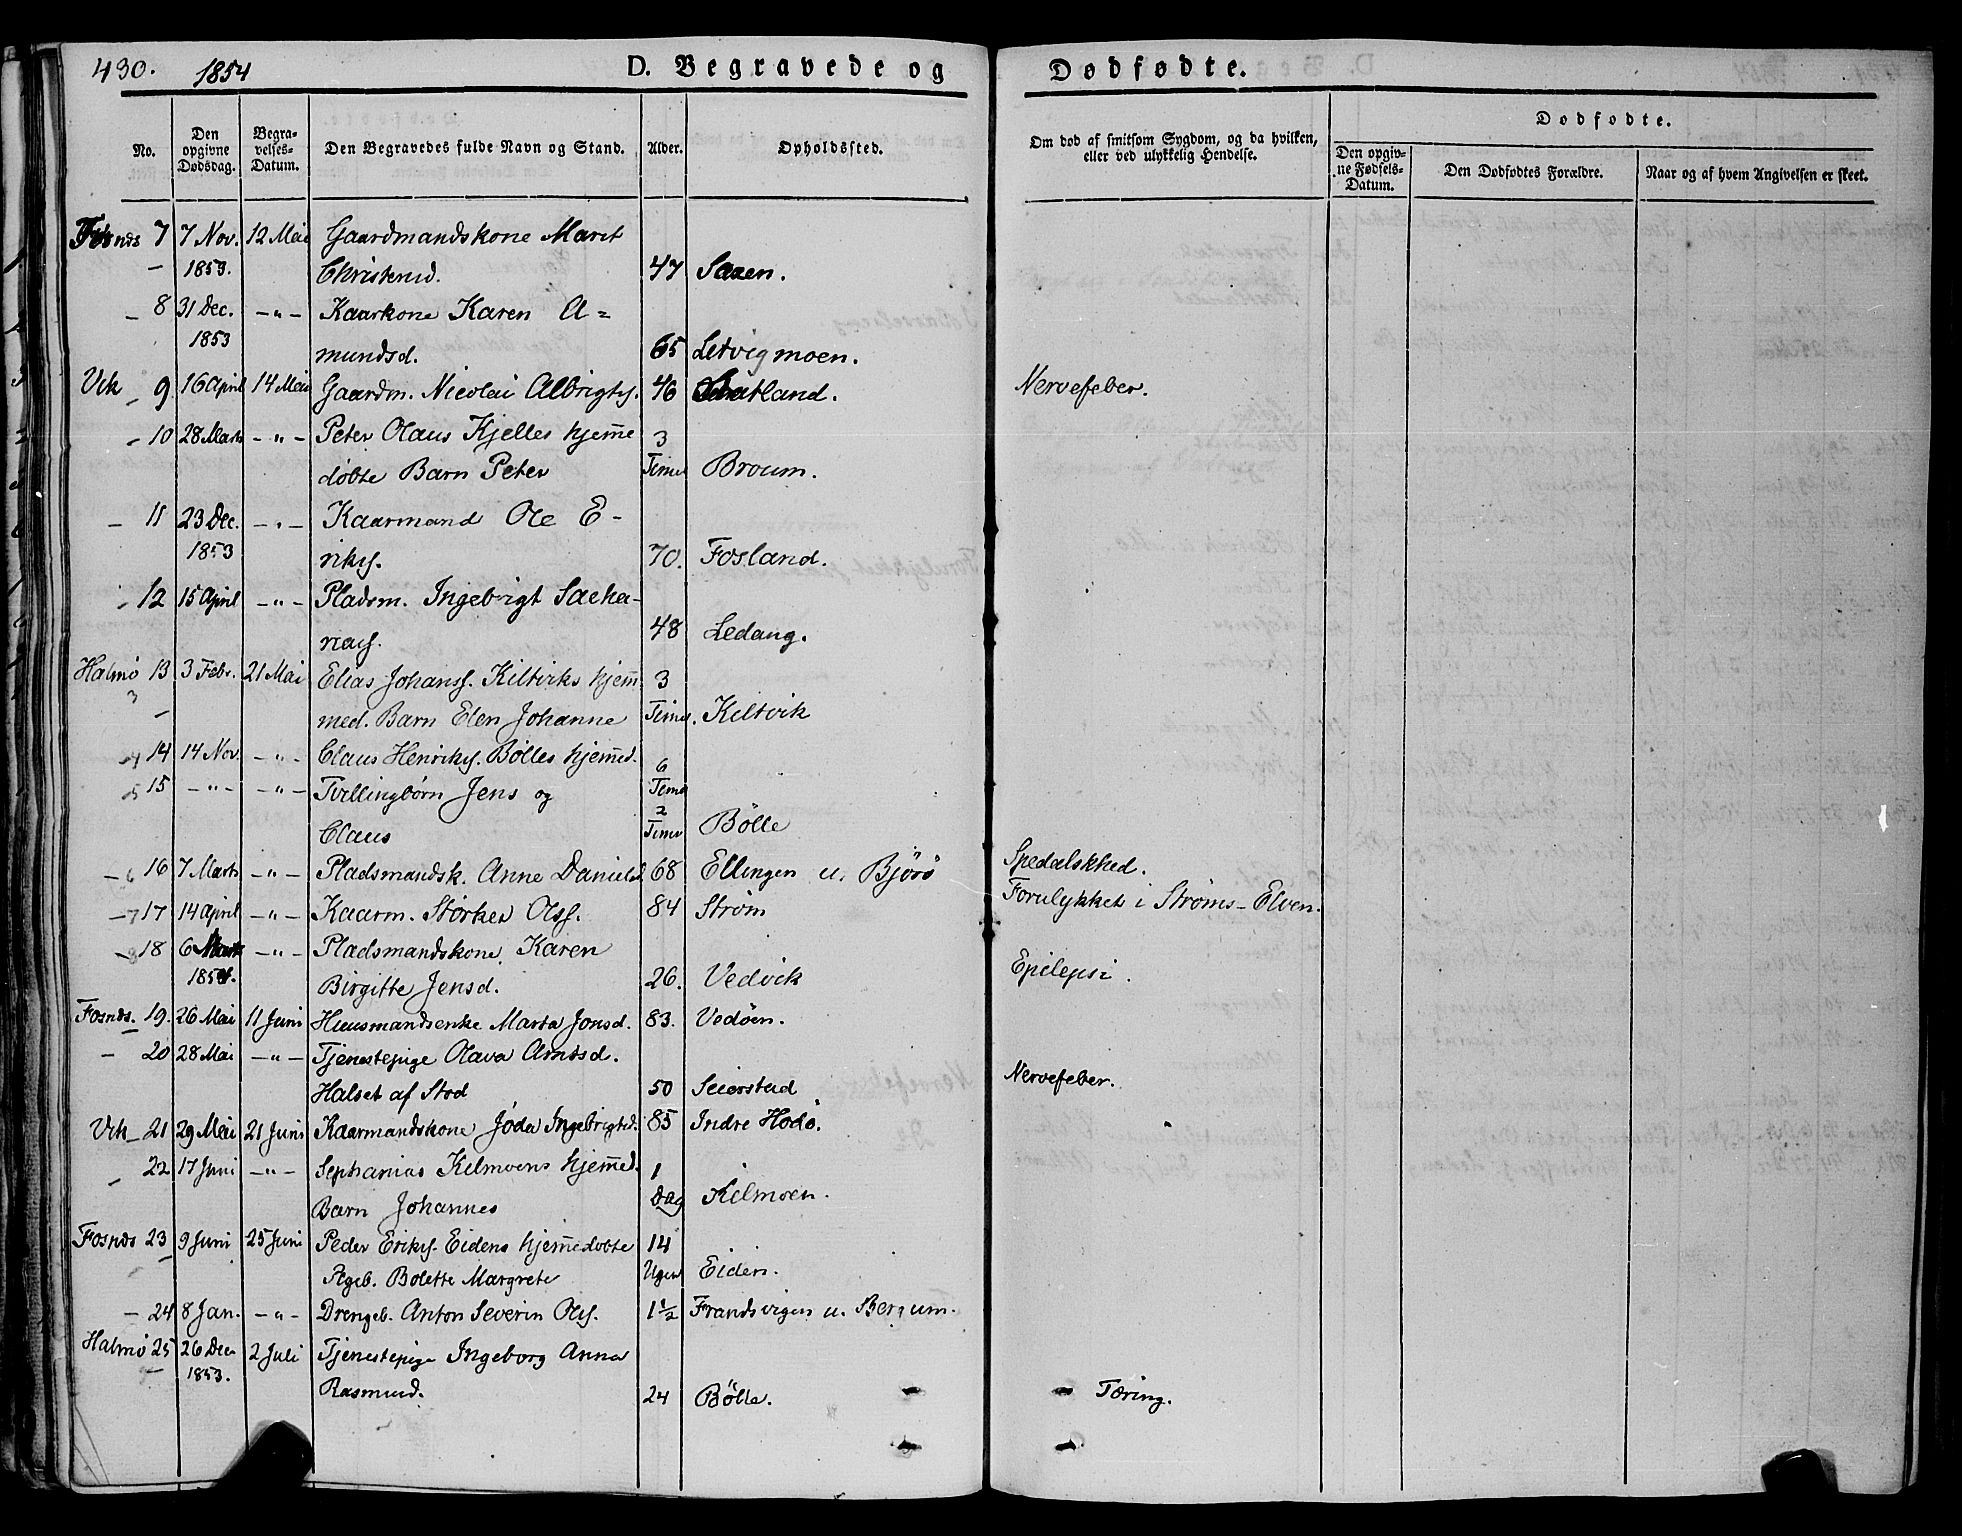 430. 1854 D. Begravede og Dødfødte.
No. Den opgivne Dødsdag. Begravelses-Datum. Den Begravedes fulde Navn og Stand. Alder. Opholdssted. Om død af smitsom Sygdom, og da hvilken, eller ved ulykkelig Hendelse. Dødfødte. Den opgivne Fødsels-Datum. Den Dødfødtes Forældre. Naar og af hvem Angivelsen er skeet.
Fosnæs 7 7 Nov. 12 Mai Gaardmandskone Marit
1853. Christensd. 47 Saxen.
8 31 Dec. -"- Kaarkone Karen A=
1853 mundsd. 65 Letvigmoen.
Vik 9 16 April 14 Mai Gaardm. Nicolai Albrigts. 46 Nervefeber.
10 28 Marts -"- Peter Olaus Kjelles hjemme 3
døbte Barn Peter Timer Broum.
11 23 Dec. -"- Kaarmand Ole E-
1853 riks. 70. Fosland.
12 15 April -"- Pladsm. Ingebrigt Sacha-
rias. 48 Ledang.
Halmø 13 3 Febr. 21 Mai Elias Johanss. Kiltviks hjem 3
3 med. Barn Elen Johanne Timer. Kiltvik
4 14 14 Nov. -"- Claus Henriks. Bølles hjemmed. 6
5 15 -"- -"- Tvillingbørn Jens og Timer
2
Claus Timer Bølle
6 16 7 Marts -"- Pladsmandsk. Anne Danielsd. 68 Ellingen u. Bjørø Spedalskhed.
7 17 14 April -"- Kaarm. Størker Olss. 84 Strøm Forulykket i Strøms-Elven.
8 18 6 Marts -"- Pladsmandskone Karen
1854. Birgitte Jensd. 26. Vedvik Epilepsi.
Fosnæs. 19. 26 Mai 11 Juni Huusmandsenke Marta Jonsd. 83. Vedøen.
20 28 Mai -"- Tjenestepige Olava Arntsd.
Halset af Stod 50 Seierstad Nervefeber.
Vik 21 29 Mai 21 Juni Kaarmandskone Joda Ingebrigtsd. 85 Indre Hodø.
22 17 Juni -"- Sephanias Kelmoens hjemmed. 1
Barn Johannes Dag Kelmoen.
Fosnæs 23 9 Juni 25 Juni Peder Eriks. Eidens hjemmedøbte 14
Pigeb. Bolette Margrete Uger Eiden.
24 8 Jan. -"- Drengeb. Anton Severin Ols. 1½ Frandsvigen u. Bergum.
Halmø 25 26 Dec 2 Juli Tjenestepige Ingeborg Anna
1853. Rasmusd. 24 Bølle. Tæring.